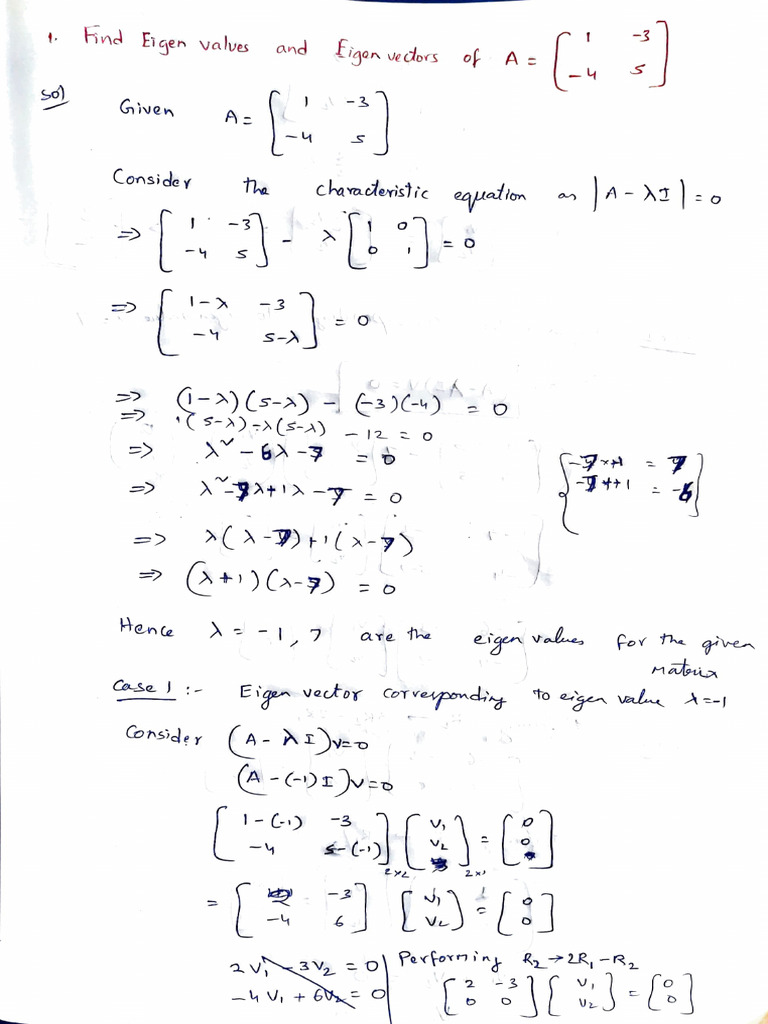 1. Find Eigen values and Eigen vectors of A = [ 1 -3 ; -4 5 ]
Sol
Given A = [ 1 -3 ; -4 5 ]
Consider the characteristic equation as |A - λI| = 0
=> [ 1 -3 ; -4 5 ] - λ [ 1 0 ; 0 1 ] = 0
=> [ 1-λ -3 ; -4 5-λ ] = 0
=> (1-λ)(5-λ) - (-3)(-4) = 0
=> 1(5-λ)-λ(5-λ) - 12 = 0
=> λ² - 6λ - 7 = 0
{ -7×1 = 7
-7+1 = -6 }
=> λ² - 7λ + 1λ - 7 = 0
=> λ(λ-7) + 1(λ-7)
=> (λ+1)(λ-7) = 0
Hence λ = -1, 7 are the eigen values for the given
matrix
Case 1 :- Eigen vector corresponding to eigen value λ=-1
Consider (A - λI)v=0
(A - (-1)I)v=0
[ 1-(-1) -3 ; -4 5-(-1) ]2×2 [ v1 ; v2 ]2×1 = [ 0 ; 0 ]
= [ 2 -3 ; -4 6 ] [ v1 ; v2 ] = [ 0 ; 0 ]
2v1 - 3v2 = 0
-4v1 + 6v2 = 0
Performing R2→2R1-R2
[ 2 -3 ; 0 0 ] [ v1 ; v2 ] = [ 0 ; 0 ]